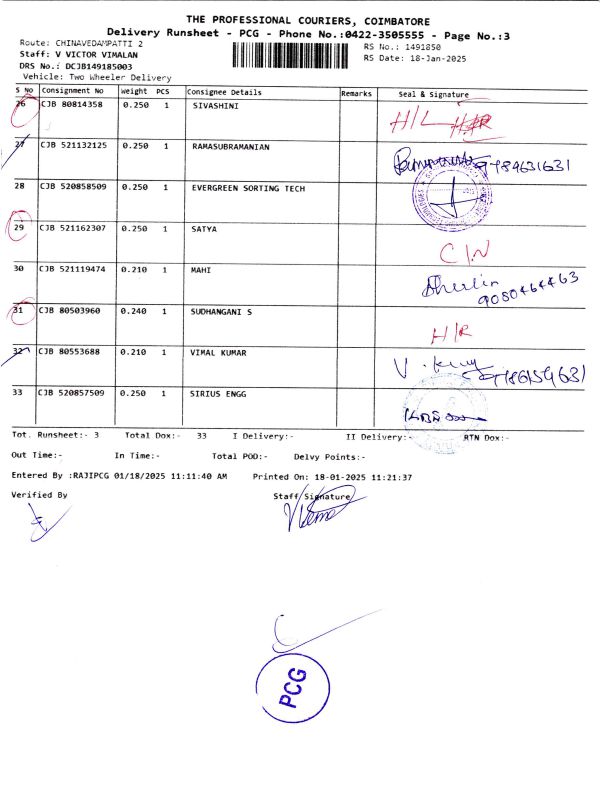 THE PROFESSIONAL COURIERS, COIMBATORE
Delivery Runsheet - PCG - Phone No.:0422-3505555 - Page No.:3
Route: CHINAVEDAMPATTI 2
RS No.: 1491850
Staff: V VICTOR VIMALAN
RS Date: 18-Jan-2025
DRS No.: DCJB149185003
Vehicle: Two Wheeler Delivery
S No Consignment No Weight PCS Consignee Details Remarks Seal & Signature
26 CJB 80814358 0.250 1 SIVASHINI H/L
27 CJB 521132125 0.250 1 RAMASUBRAMANIAN
28 CJB 520858509 0.250 1 EVERGREEN SORTING TECH
29 CJB 521162307 0.250 1 SATYA C/N
30 CJB 521119474 0.210 1 MAHI
9080464463
31 CJB 80503960 0.240 1 SUDHANGANI S H/R
32 CJB 80553688 0.210 1 VIMAL KUMAR
33 CJB 520857509 0.250 1 SIRIUS ENGG
Tot. Runsheet:- 3 Total Dox:- 33 I Delivery:- II Delivery:- RTN Dox:-
Out Time:- In Time:- Total POD:- Delvy Points:-
Entered By :RAJIPCG 01/18/2025 11:11:40 AM Printed On: 18-01-2025 11:21:37
Verified By Staff/Signature
PCG